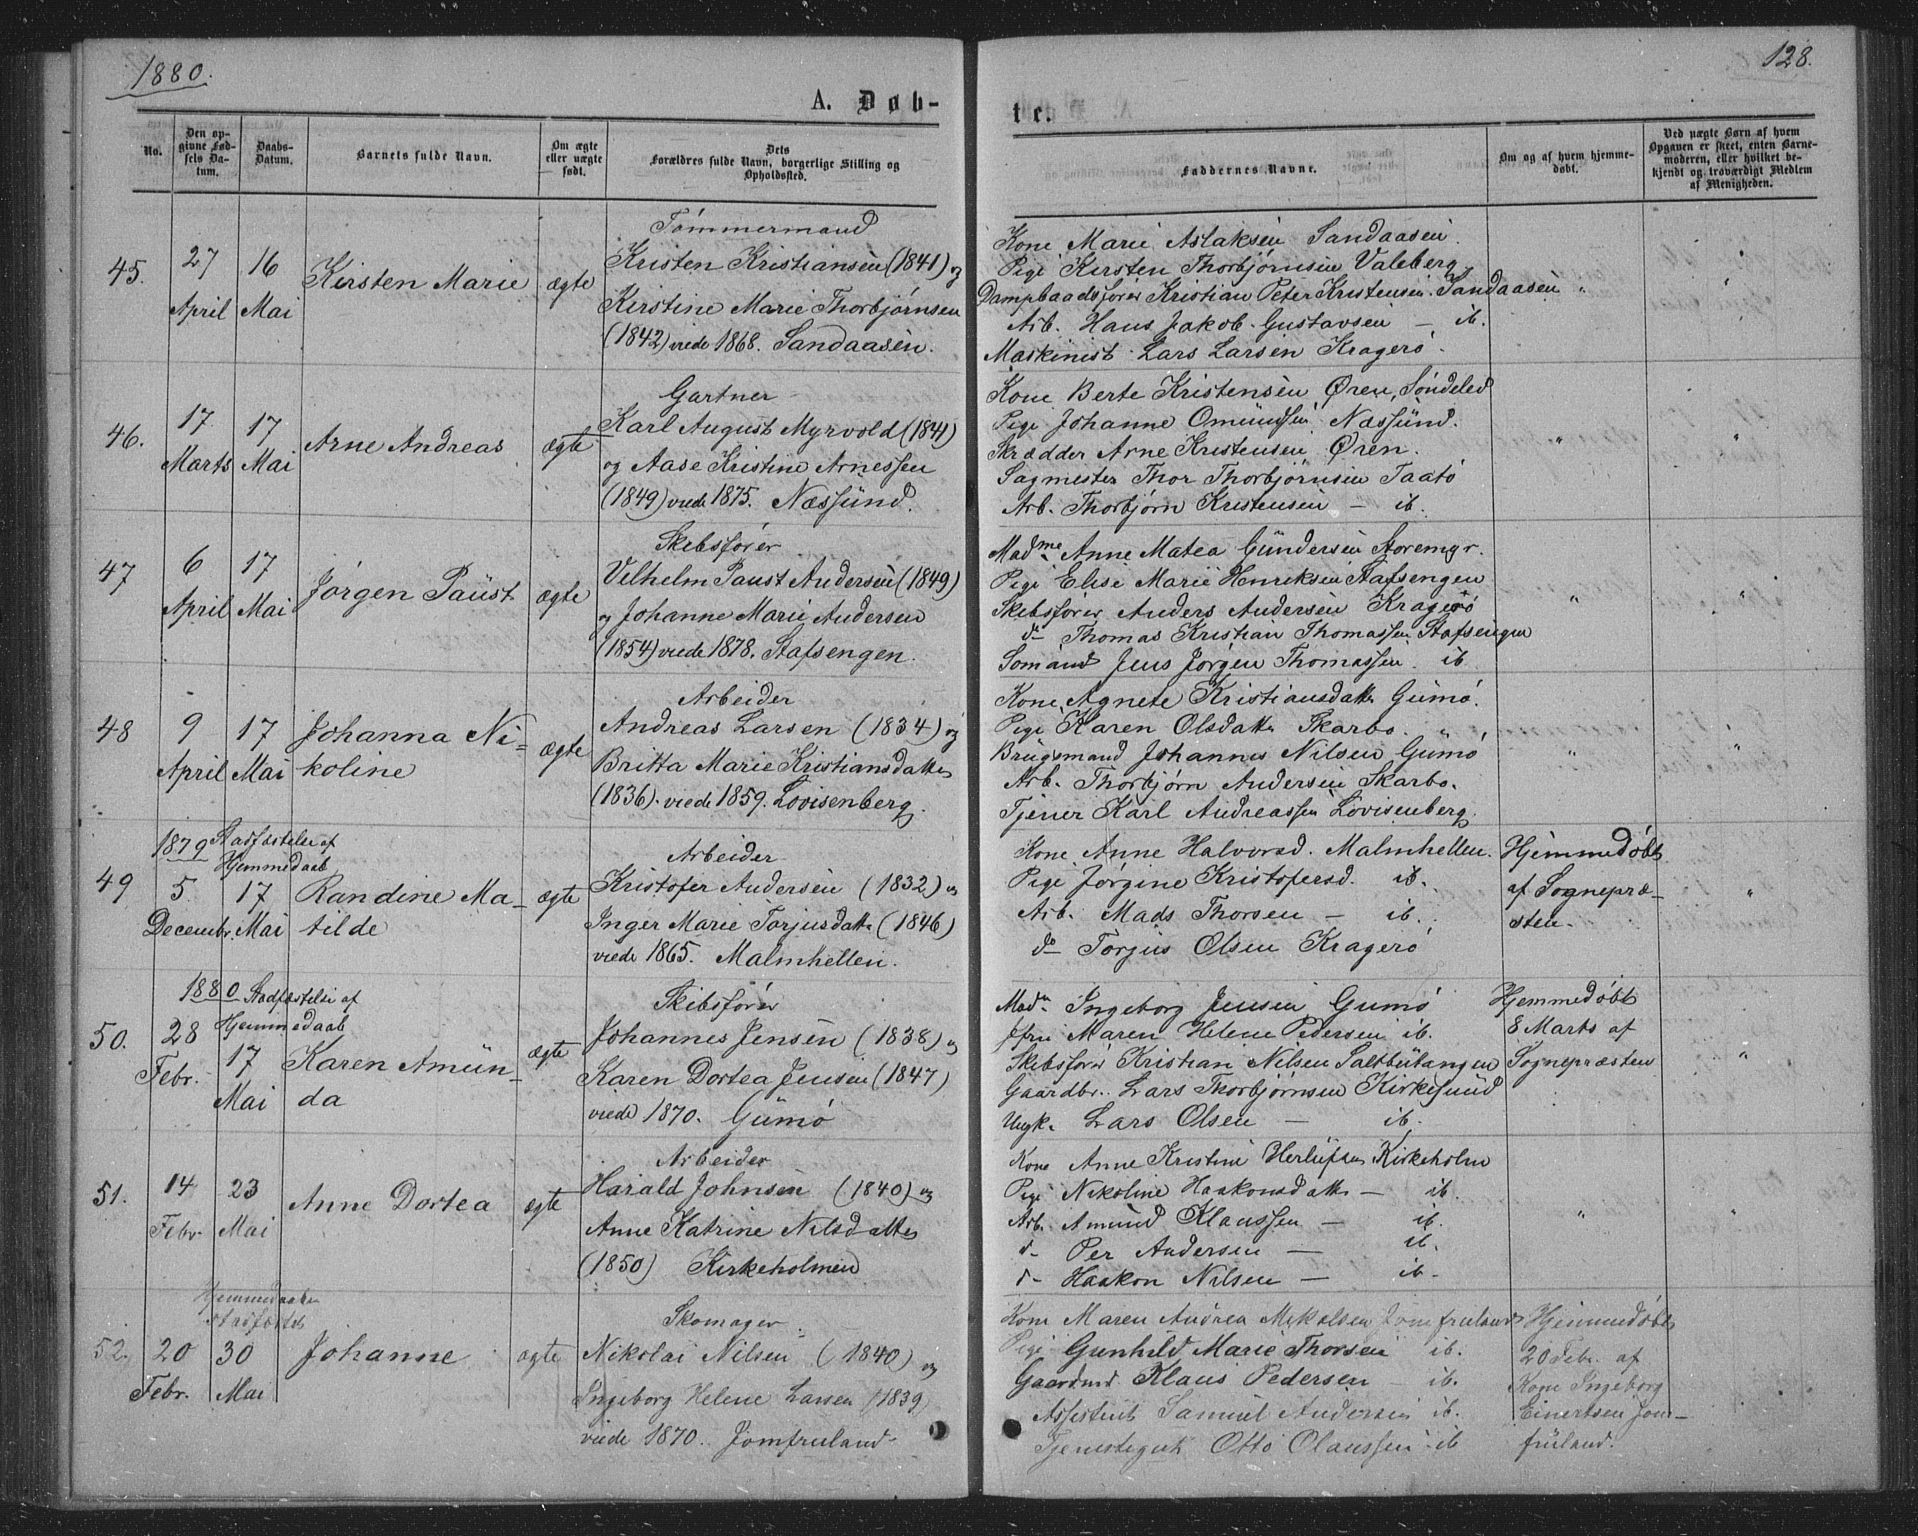 1880.
128.
A. Døb-
te.
No.
Den op-
givne Fød-
sels Da-
tum.
Daabs-
Datum.
Barnets fulde Navn.
Om ægte
eller uægte
født.
Dets
Forældres fulde Navn, borgerlige Stilling og
Opholdssted.
Faddernes Navne.
Om og af hvem hjemme-
døbt.
Ved uægte Børn af hvem
Opgaven er skeet, enten Barne-
moderen, eller hvilket be-
kjendt og troværdigt Medlem
af Menigheden.
45.
27
April
16
Mai
Kirsten Marie
ægte
Tømmermand
Kristen Kristiansen (1841) og
Kirstine Marie Thorbjørnsen
(1842) viede 1868. Sandaasen.
Kone Marie Aslaksen Sandaasen.
Pige Kirsten Thorbjørnsen Valeberg
Dampbaadsfører Kristian Peter Kristensen Sandaasen
Arb. Hans Jakob Gustavsen — ib.
Maskinist Lars Larsen Kragerø.
46.
17
Marts
17
Mai
Arne Andreas
ægte
Gartner
Karl August Myrvold (1841)
og Aase Kristine Arnessen
(1849) viede 1875. Næssund.
Kone Berte Kristensen Øren, Søndeled
Pige Johanne Omundsen Næssund.
Skrædder Arne Kristensen Øren.
Sagmester Thor Thorbjørnsen Taatø
Arb. Thorbjørn Kristensen — ib.
47
6
April
17
Mai
Jørgen Paust
ægte
Skibsfører
Vilhelm Paust Andersen (1849)
og Johanne Marie Andersen
(1854) viede 1878. Stafsengen.
Madme Anne Matea Gundersen Storemyr.
Pige Elise Marie Henriksen Stafsengen
Skibsfører Anders Andersen Kragerø
do Thomas Kristian Thomassen Stafsengen
Sømand Jens Jørgen Thomassen. ib.
48
9
April
17
Mai
Johanna Ni-
koline
ægte
Arbeider
Andreas Larsen (1834) og
Britta Marie Kristiansdatter
(1836). viede 1859. Lovisenberg.
Kone Agnete Kristiansdatt. Gumø.
Pige Karen Olsdatt. Skarbo.
Brugsmand Johannes Nilsen Gumø
Arb. Thorbjørn Andersen Skarbo.
Tjener Karl Andreassen Lovisenberg.
49
1879
5.
Decembr.
Stadfæstelse af
Hjemmedaab
17
Mai
Randine Ma-
tilde
ægte
Arbeider
Kristofer Andersen (1832) og
Inger Marie Torjusdatt. (1846)
viede 1865. Malmhellen.
Kone Anne Halvorsd. Malmhellen.
Pige Jørgine Kristofersd. ib.
Arb. Mads Thorsen — ib.
do Torjus Olsen Kragerø
Hjemmedøbt
af Sognepræ-
sten.
50.
1880
28
Febr.
Stadfæstelse af
Hjemmedaab
17
Mai
Karen Amun-
da
ægte
Skibsfører
Johannes Jensen (1838) og
Karen Dortea Jensen (1847)
viede 1870. Gumø
Madm Ingeborg Jensen Gumø
Jfru Maren Helene Pedersen ib.
Skibsfører Kristian Nilsen Saltbutangen
Gaardbr. Lars Thorbjørnsen Kirkesund
Ungk. Lars Olsen — ib.
Hjemmedøbt
8 Marts af
Sognepræsten
51.
14
Febr.
23
Mai
Anne Dortea
ægte
Arbeider
Harald Johnsen (1840) og
Anne Katrine Nilsdatter
(1850) Kirkeholmen
Kone Anne Kristine Herlufsen Kirkeholm
Pige Nikoline Haakonsdatt. — ib.
Arb. Amund Klaussen — ib.
do Per Andersen — ib.
do Haakon Nilsen — ib.
52.
20
Febr.
Hjemmedaab
stadfæstet
30
Mai
Johanne
ægte
Skomager
Nikolai Nilsen (1840) og
Ingeborg Helene Larsen (1839)
viede 1870. Jomfruland
Kone Maren Andrea Mikalsen Jomfruland
Pige Gunhild Marie Thorsen ib.
Gaardmd Klaus Pedersen — ib.
Assistent Samuel Andersen ib.
Tjenestegut Otto Olaussen ib
Hjemmedøbt
20 Febr. af
Kone Ingeborg
Einertsen Jom-
fruland.